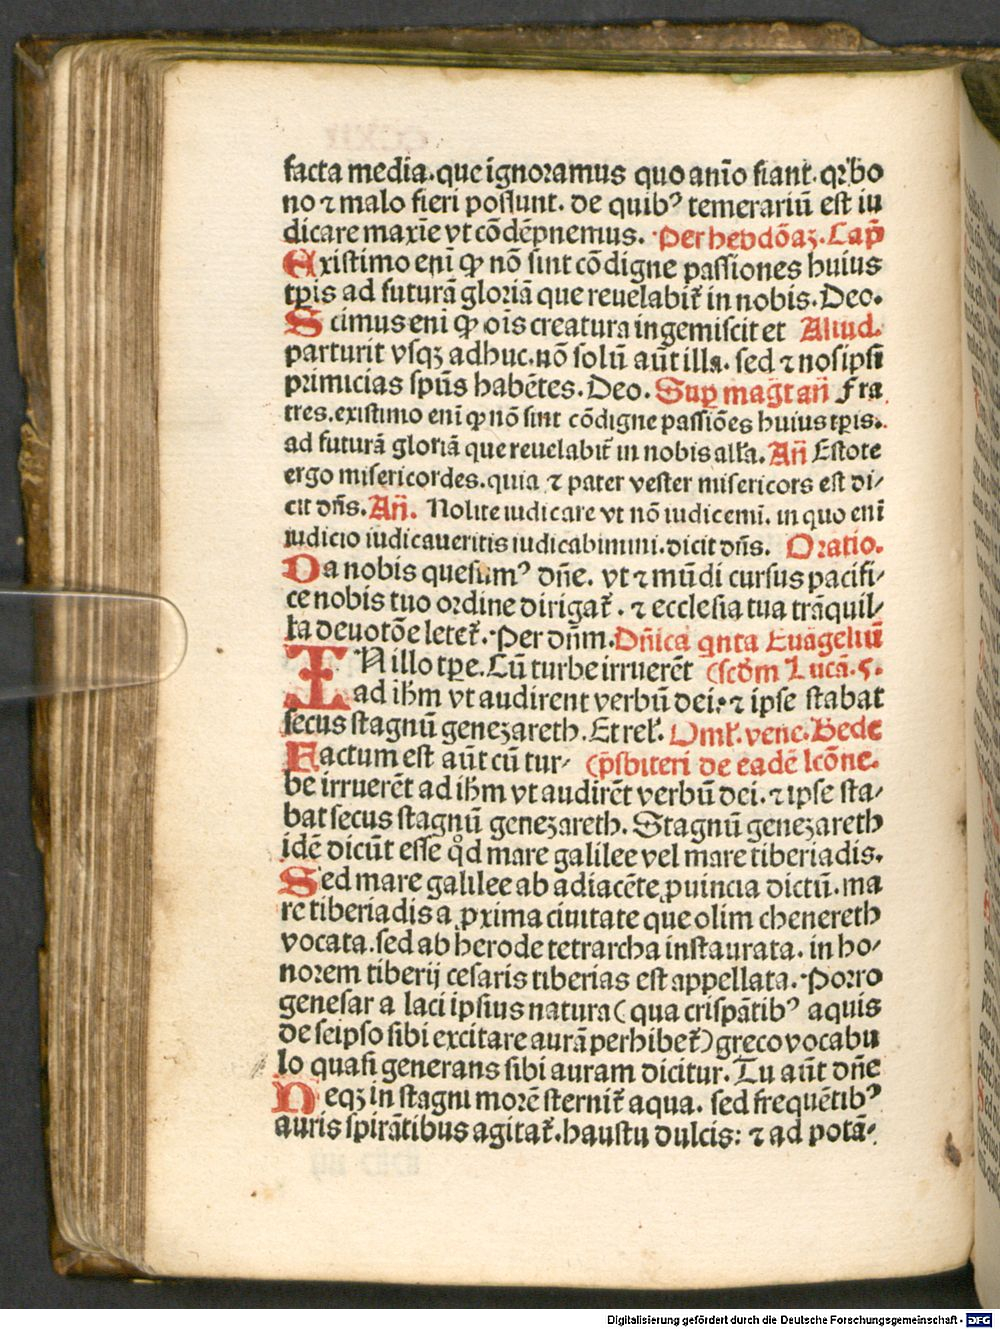 facta media.que ignoramus quo anīo fiant. qꝛ bo
no ⁊ malo fieri possunt. de quibꝰ temerariū est iu
dicare maxīe vt cōdēpnemus. Per hebdōaꝫ. Cap̄
Existimo enī ꝙ nō sint cōdigne passiones huius
tꝑis ad futurā gloriā que reuelabit᷑ in nobis. Deo.
Scimus enī ꝙ oīs creatura ingemiscit et Aliud.
parturit vsqꝫ adhuc.nō solū aūt illa. sed ⁊ nosipsi
primicias spūs habētes. Deo. Sup magt̄ an̄ Fra
tres. existimo enī ꝙ nō sint cōdigne passiōes huius tꝑis.
ad futurā gloriā que reuelabit᷑ in nobis allꝛa. An̄ Estote
ergo misericordes. quia ⁊ pater vester misericors est di/
cit dn̄s. An̄. Nolite iudicare vt nō iudicemī. in quo enī
iudicio iudicaueritis iudicabimini. dicit dn̄s. Oratio.
Da nobis quesumꝰ dn̄e. vt ⁊ mūdi cursus pacifi/
ce nobis tuo ordine dirigat᷑. ⁊ ecclesia tua trāquil/
la deuotōe letet᷑. Per dn̄m. Dn̄ica qnta Euāgeliū
IN illo tꝑe. Cū turbe irruerēt (scd̄m Lucā. 5.
ad ihm̄ vt audirent verbū dei. ⁊ ipse stabat
secus stagnū geneꝫareth. Et reł. Omł. vene. Bede
Factum est aūt cū tur/ (p̄sbiteri de eadē lcōne.
be irruerēt ad ihm̄ vt audirēt verbū dei. ⁊ ipse sta/
bat secus stagnū geneꝫareth. Stagnū geneꝫareth
idē dicūt esse qd̄ mare galilee vel mare tiberiadis.
Sed mare galilee ab adiacēte ꝓuincia dictū. ma
re tiberiadis a ꝓxima ciuitate que olim chenereth
vocata. sed ab herode tetrarcha instaurata. in ho/
norem tiberij cesaris tiberias est appellata. Porro
genesar a laci ipsius natura (qua crispātibꝰ aquis
de seipso sibi excitare aurā perhibet᷑) greco vocabu
lo quasi generans sibi auram dicitur. Tu aūt dn̄e
Neqꝫ in stagni morē sternit᷑ aqua. sed frequētibꝰ
auris spirātibus agitat᷑. haustu dulcis: ⁊ ad potā/
Digitalisierung gefördert durch die Deutsche Forschungsgemeinschaft - DFG